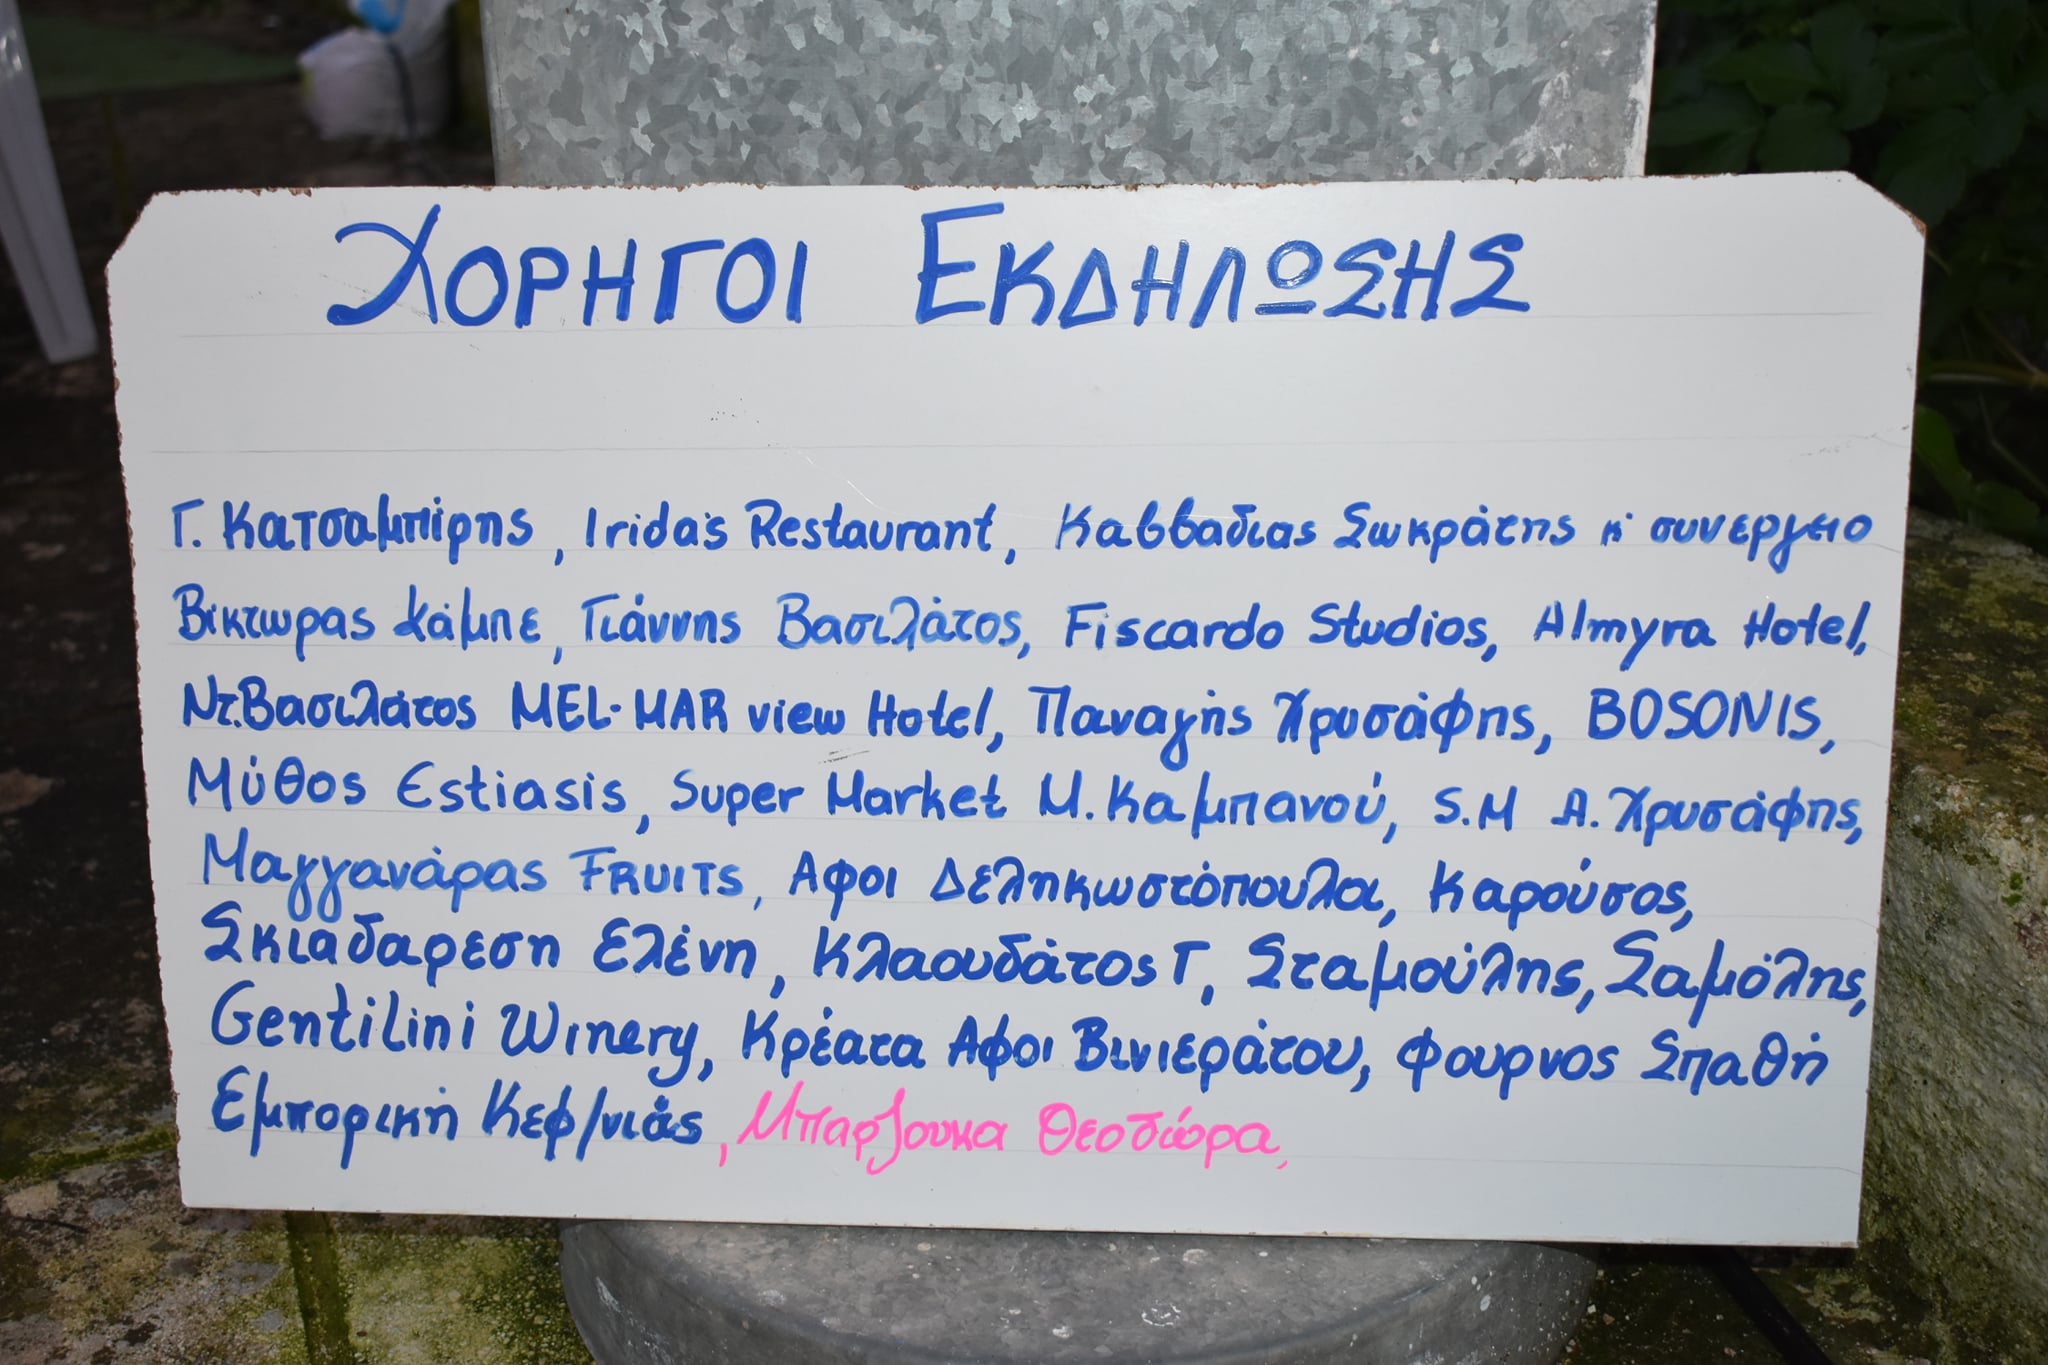 ΧΟΡΗΓΟΙ ΕΚΔΗΛΩΣΗΣ
Γ. Κατσαμπίρης, Irida's Restaurant, Καββαδιας Σωκράτης κ' συνεργειο
Βίκτωρας Χάμπε, Γιάννης Βασιλάτος, Fiscardo Studios, Almyra Hotel,
Ντ.Βασιλάτος MEL-MAR view Hotel, Παναγής Χρυσάφης, BOSONIS,
Μύθος Estiasis, Super Market Μ. Καμπανού, S.M Α. Χρυσάφης,
Μαγγανάρας FRUITS, Αφοι Δεληκωστόπουλα, Καρούσος,
Σκιαδαρεση Ελένη, Κλαουδάτος Γ, Σταμούλης, Σαμόλης,
Gentilini Winery, Κρέατα Αφοι Βινιεράτου, Φουρνος Σπαθή
Εμπορική Κεφ/νιάς, Μπαρζουκα Θεοδώρα,